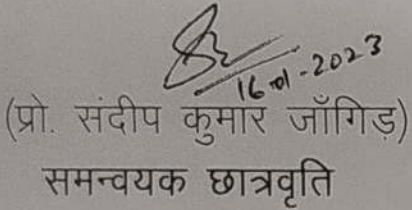 16-01-2023
(प्रो. संदीप कुमार जाँगिड़)
समन्वयक छात्रवृति